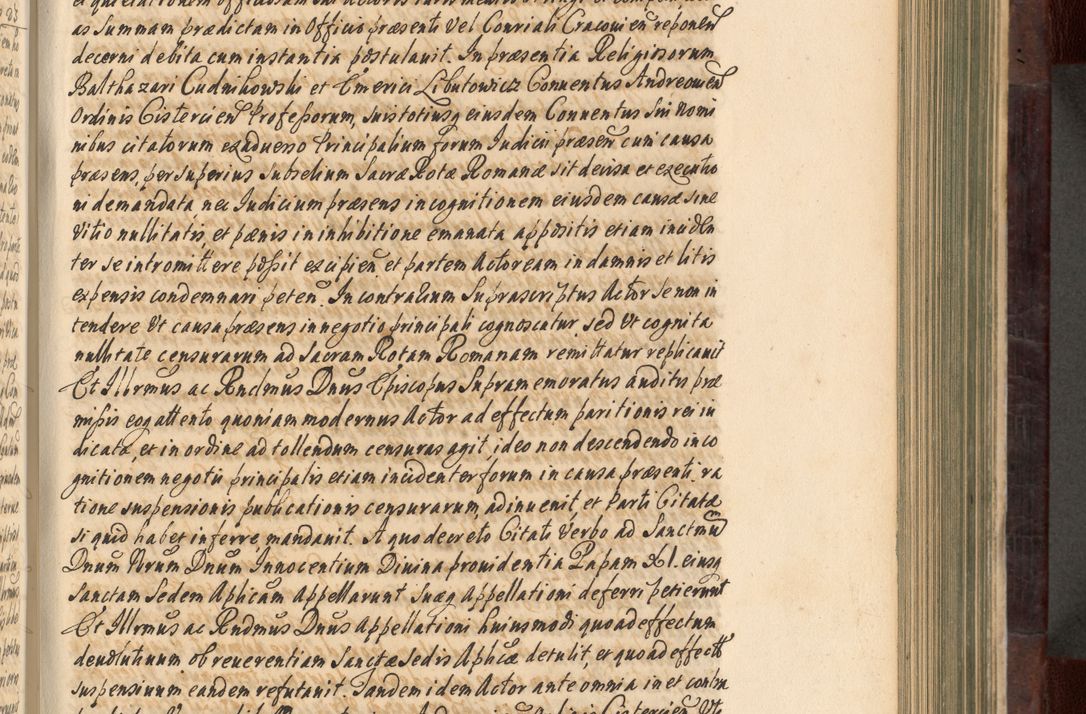 as Summam prædictam in Officio præsenti Vel Consiali Cracovien reponen
decerni debita cum instantia postulauit. In præsentia Religiosorum
Balthazari Cudnikowski et Emerici Libutowicz Conuentus Andreouien
Ordinis Cistercien Professorum, suis totiusq eiusdem Conuentus Sui nomi
nibus citatorum ex aduerso Principalium forum Iudicii præsen cum causa
præsens, per superius Subselium Sacræ Rotæ Romanæ sit decisa et executio
ni demandata nec Iudicium præsens in cognitionem eiusdem causæ sine
Vitio nullitatis, et pænis in inhibitione emanata appositis etiam inciden
ter se intromittere possit excipien et partem Actoream in damnis et litis
expensis condemnari peten. In contrarium Suprascriptus Actor se non in
tendere Ut causa præsens in negotio principali cognoscatur, sed Ut cognita
nullitate censurarum ad Sacram Rotam Romanam remittatur replicauit
Et Illrmus ac Rndmus Dnus Episcopus Supramemoratus auditis præ
missis eoq attento quoniam modernus Actor ad effectum paritionis rei iu
dicatæ, et in ordine ad tollendum censuras agit, ideo non descendendo in co
gnitionem negotii principalis etiam incidenter forum in causa præsenti ra
tione suspensionis publicationis censurarum, adinuenit, et Parti Citatæ
si quid habet inferre mandauit. A quo decreto Citati Verbo ad Sanctmu
Dnum Nrum Dnum Innocentium Diuina prouidentia Papam XI. eiusq
Sanctam Sedem Aplicam Appellarunt Suæq Appellationi deferri petierunt
Et Illrmus ac Rndmus Dnus Appellationi huiusmodi quo ad effectum
deuolutiuum ob reuerentiam Sanctæ Sedis Aplicæ detulit, et quo ad effectu
suspensiuum eandem refutauit. Tandem idem Actor ante omnia in et contra